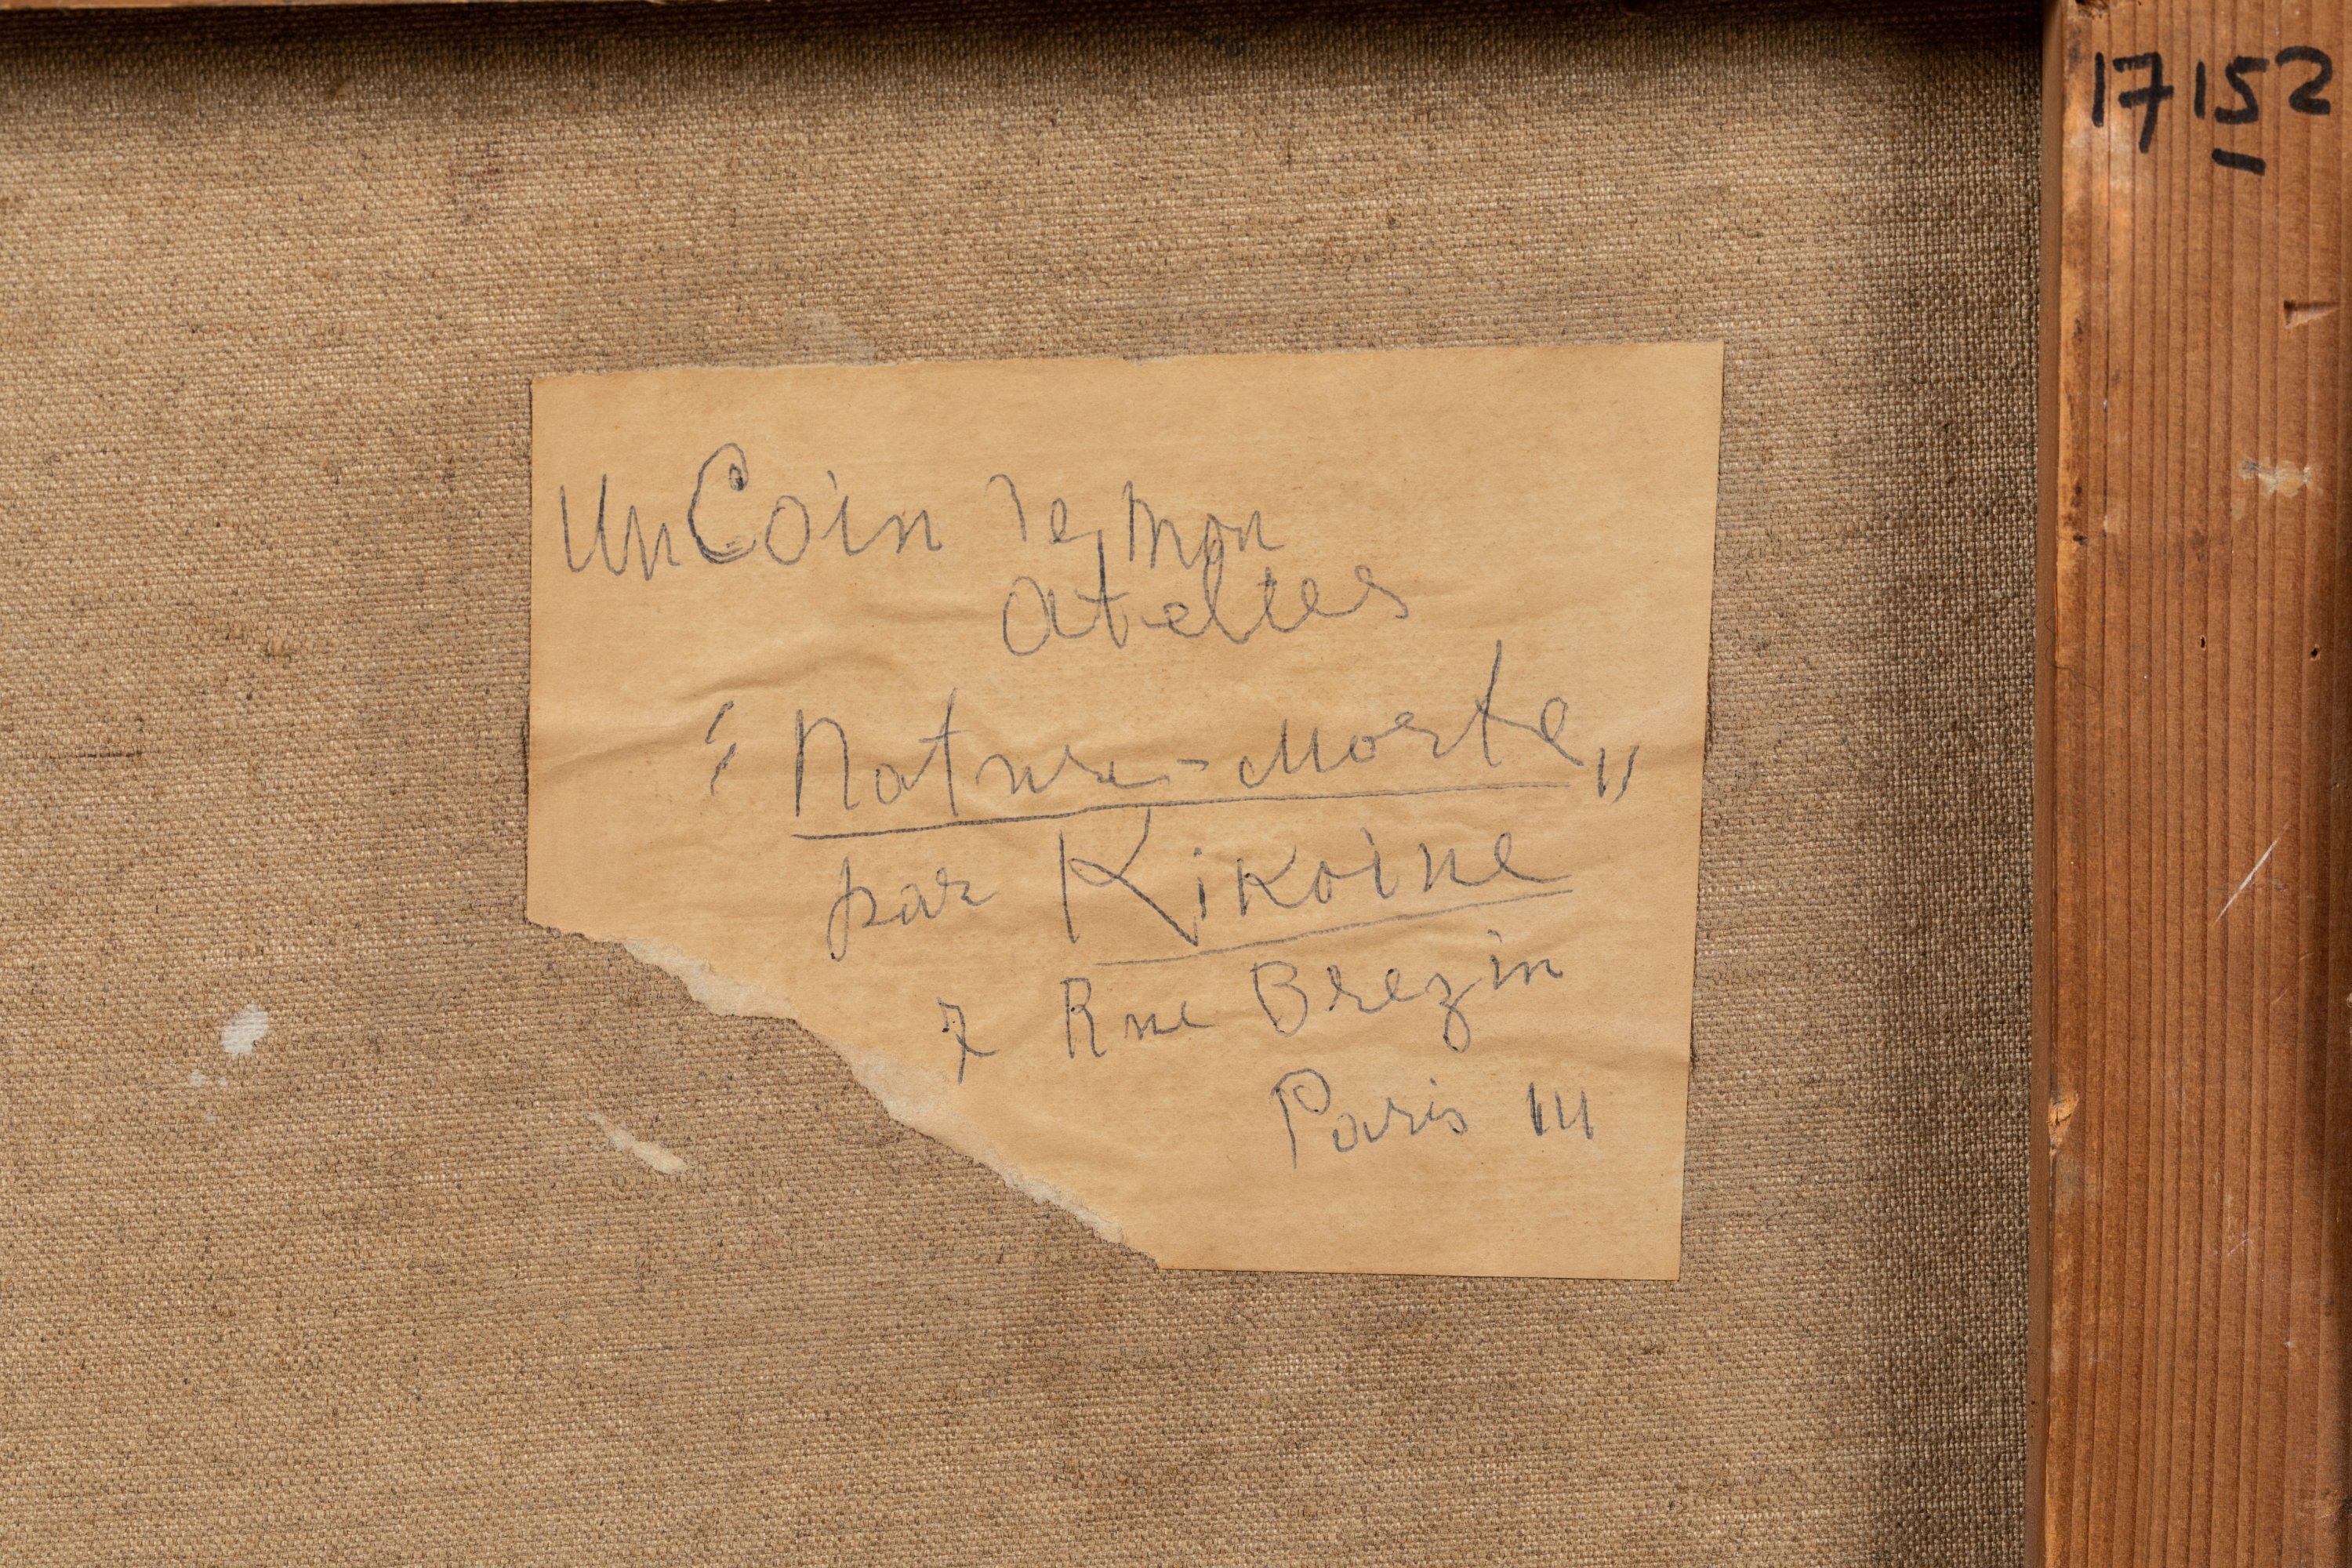 Un Coin de mon
atelier
"Nature-Morte"
par Kikoïne
7 Rue Brezin
Paris 14
17152